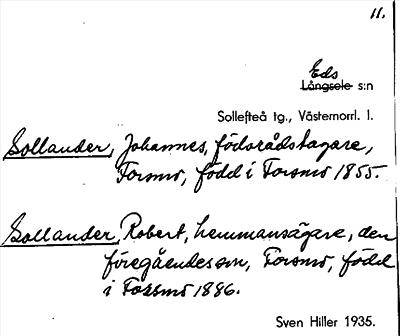 11.
Eds
Långsele s:n
Sollefteå tg., Västernorrl. l.
Sollander, Johannes, födorådstagare,
Forsmo, född i Forsmo 1855.
Sollander, Robert, hemmansägare, den
föregåendes son, Forsmo, född
i Forsmo 1886.
Sven Hiller 1935.